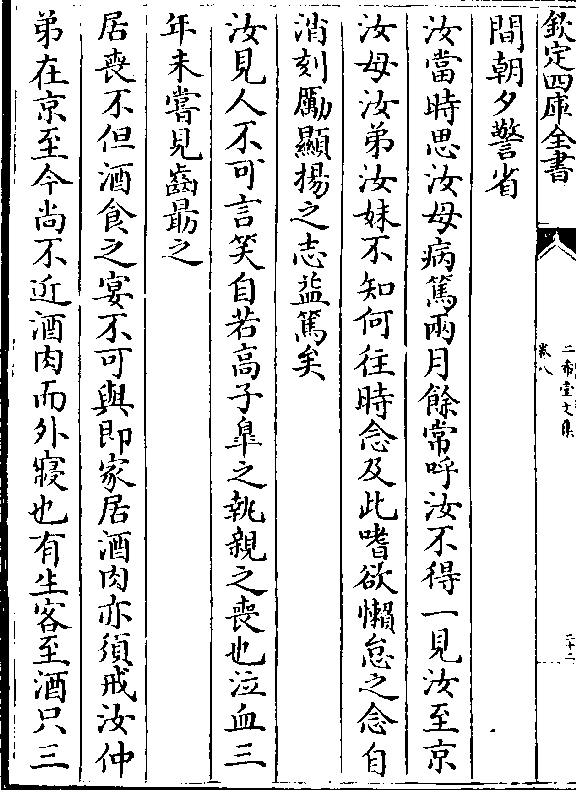 欽定四庫全書
二希堂文集
卷八
二十二
間朝夕警省
汝當時思汝母病篤兩月餘常呼汝不得一見汝至京
汝母汝弟汝妹不知何往時念及此嗜欲懶怠之念自
消刻勵顯揚之志益篤矣
汝見人不可言笑自若高子臯之執親之喪也泣血三
年未嘗見齒朂之
居喪不但酒食之宴不可與即家居酒肉亦須戒汝仲
弟在京至今尚不近酒肉而外寢也有生客至酒只三